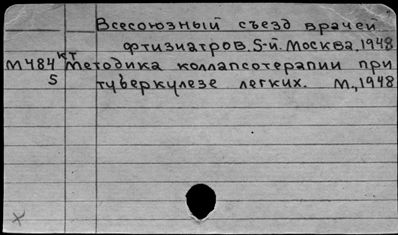 Всесоюзный съезд врачей
фтизиатров. 5-й. Москва, 1948
М484 кт Методика коллапсотерапии при
5 туберкулезе легких. М., 1948